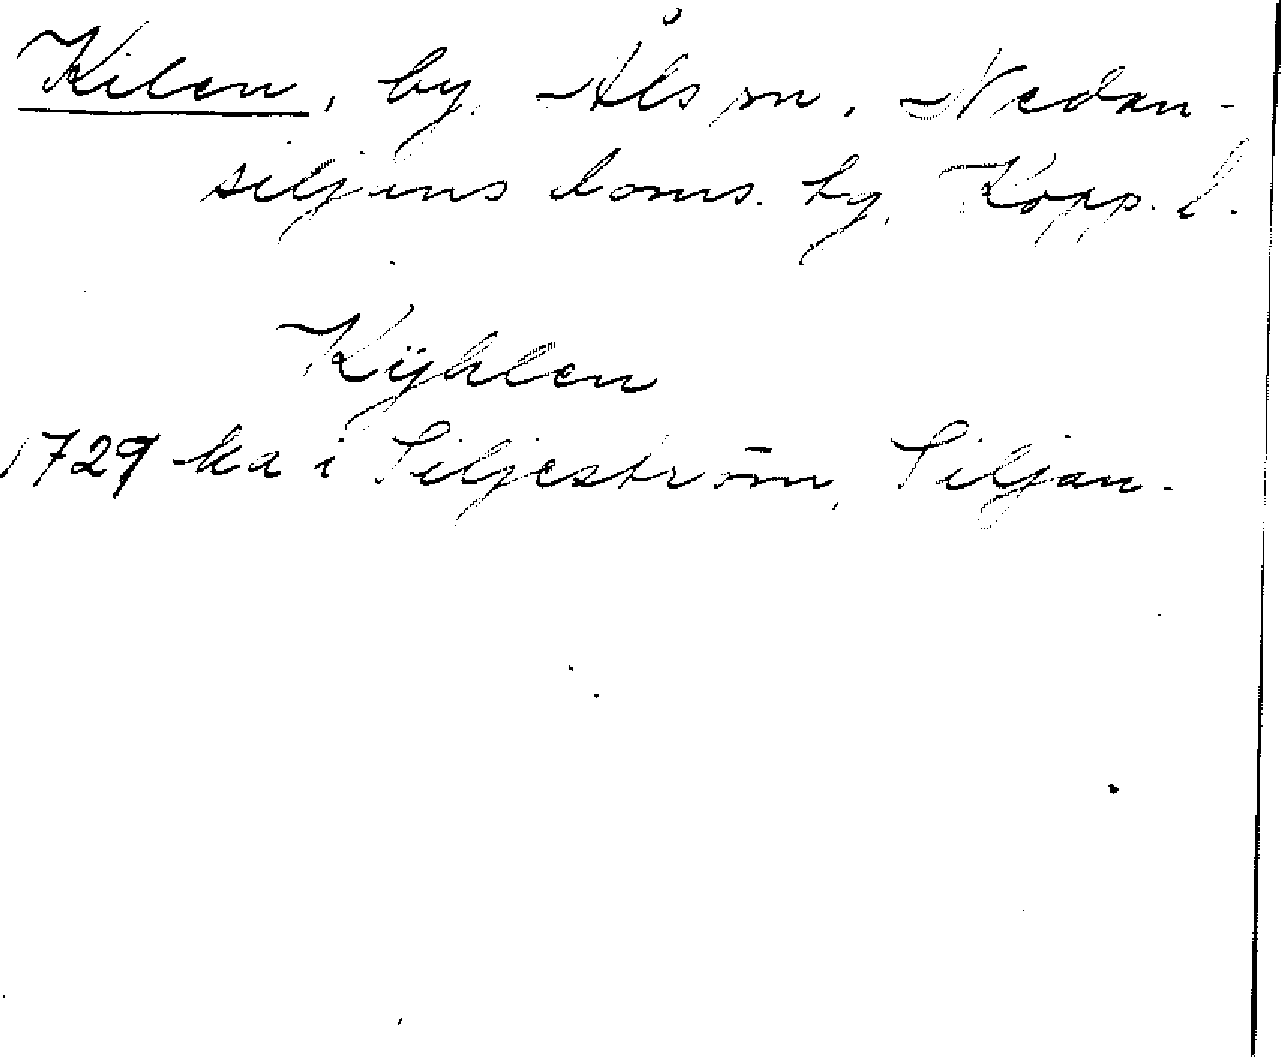 Kilen, by, Åls sn. Nedan-
siljens doms. hg, Kopp. l.
Kÿhlen
1729 ka i Siljeström, Siljan.